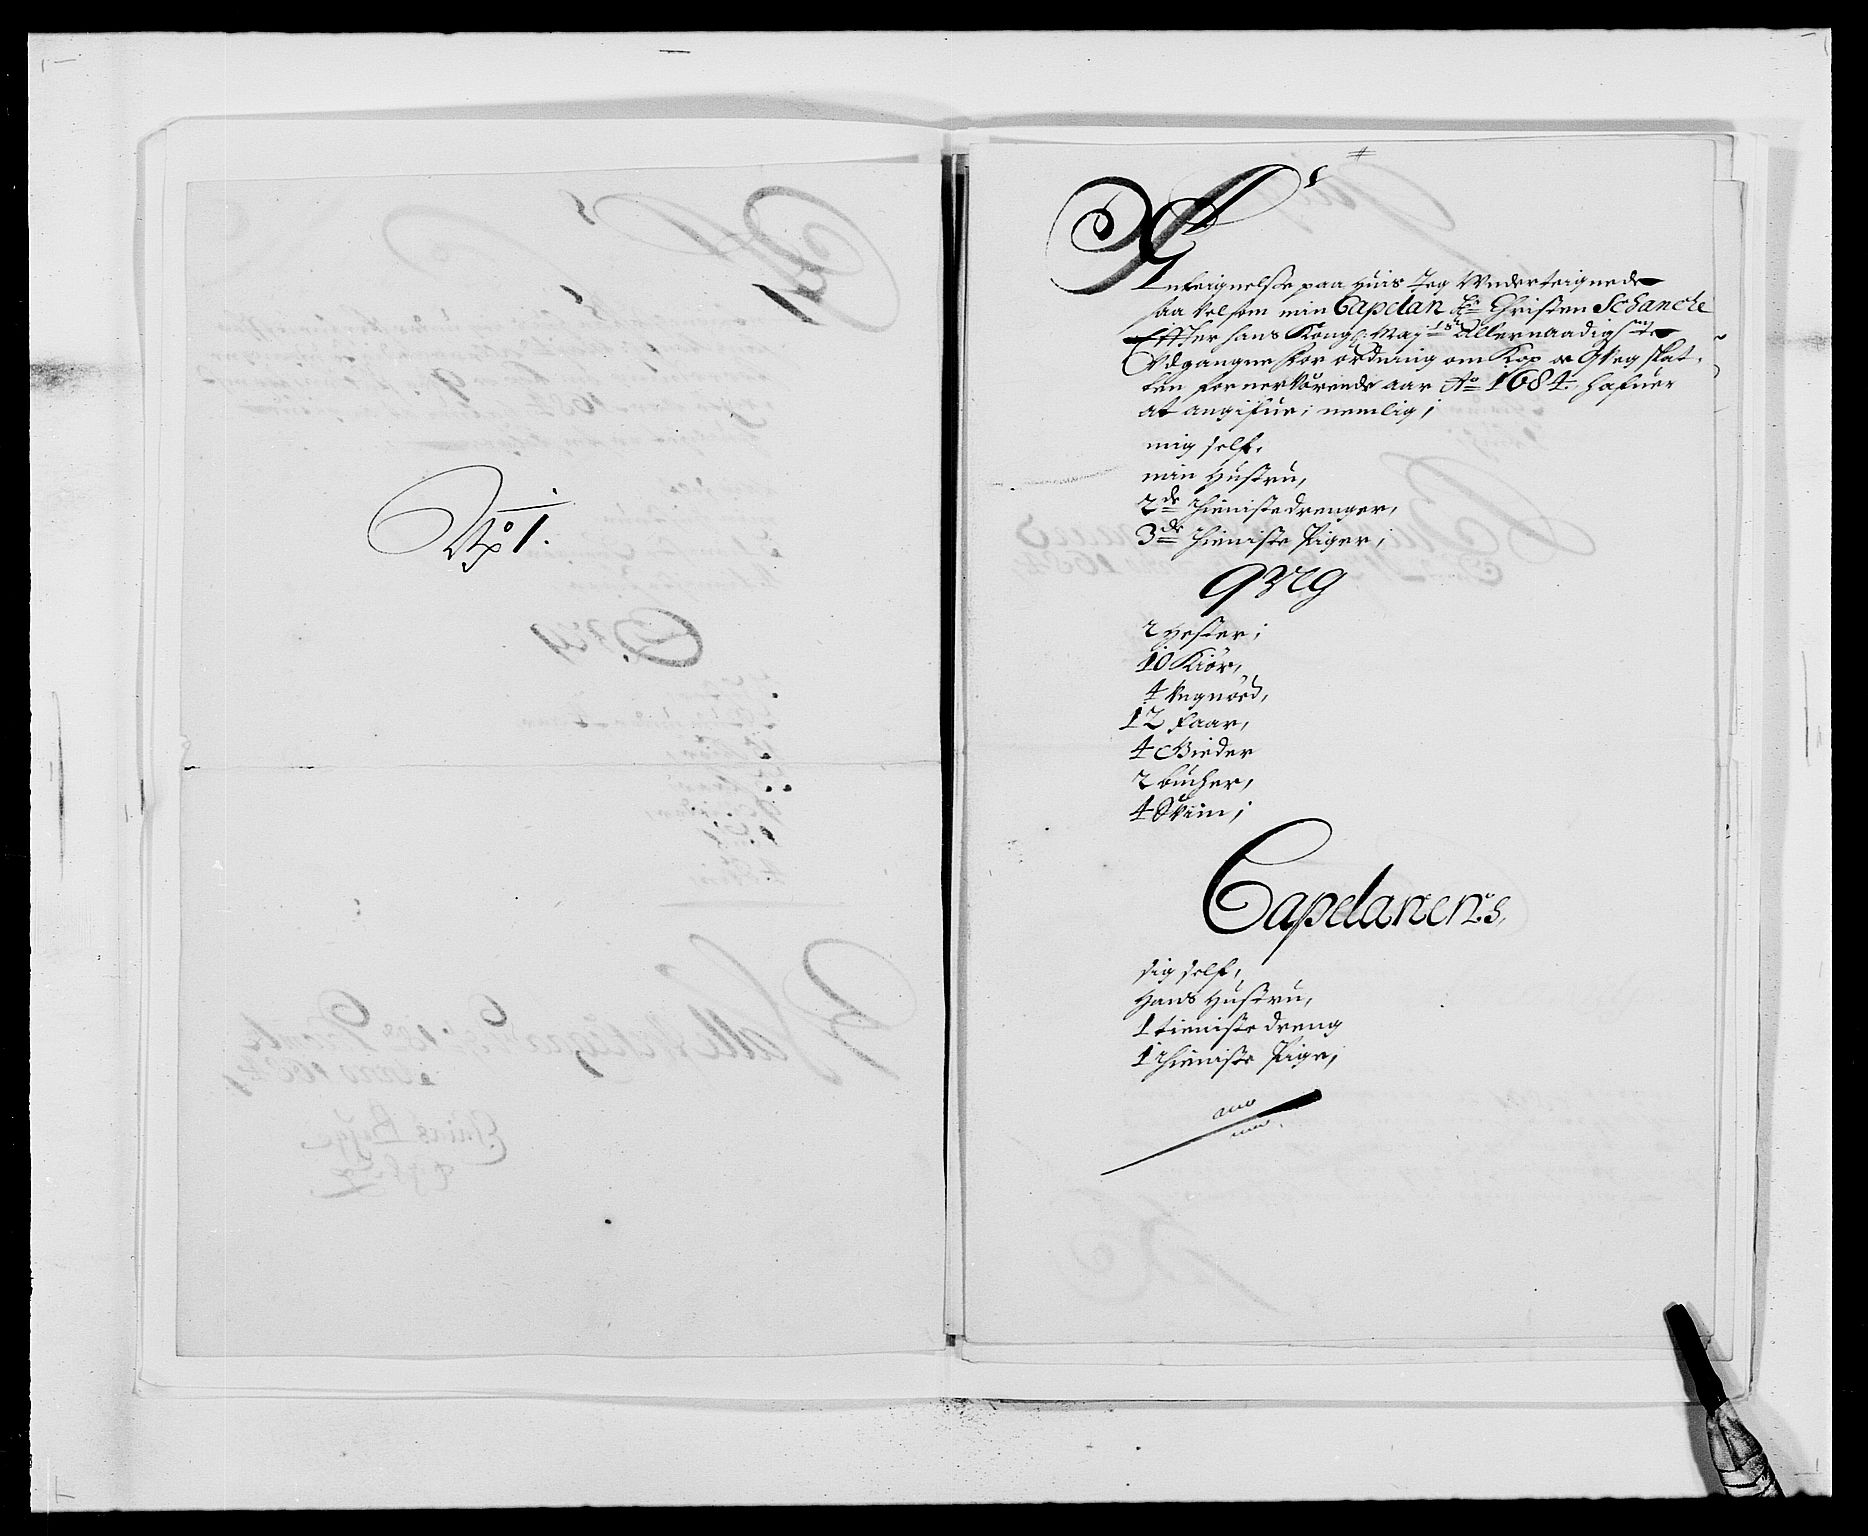 No 1.
Anteignelse paa huis Jeg Underteignede
saa Vel som min Capelan Hr Christen Schancke
Effter hans Kongl: May:ts Allernaadigste
Udgangne forordning om Kop oc Qveg skat,
ten for nerværende aar Ao 1684. hafuer
at angifue; nemlig;
mig self,
min Hustru,
2de thienistedrenger,
3de thieniste Piger;
QVEG
2 Hester;
10 Kiör,
4 Ungnöed,
12 Faar,
4 Gieder
2 bucher,
4 Sviin;
Capelanens,
sig self,
Hans Hustru,
1 tieniste dreng
1 thieniste Pige;